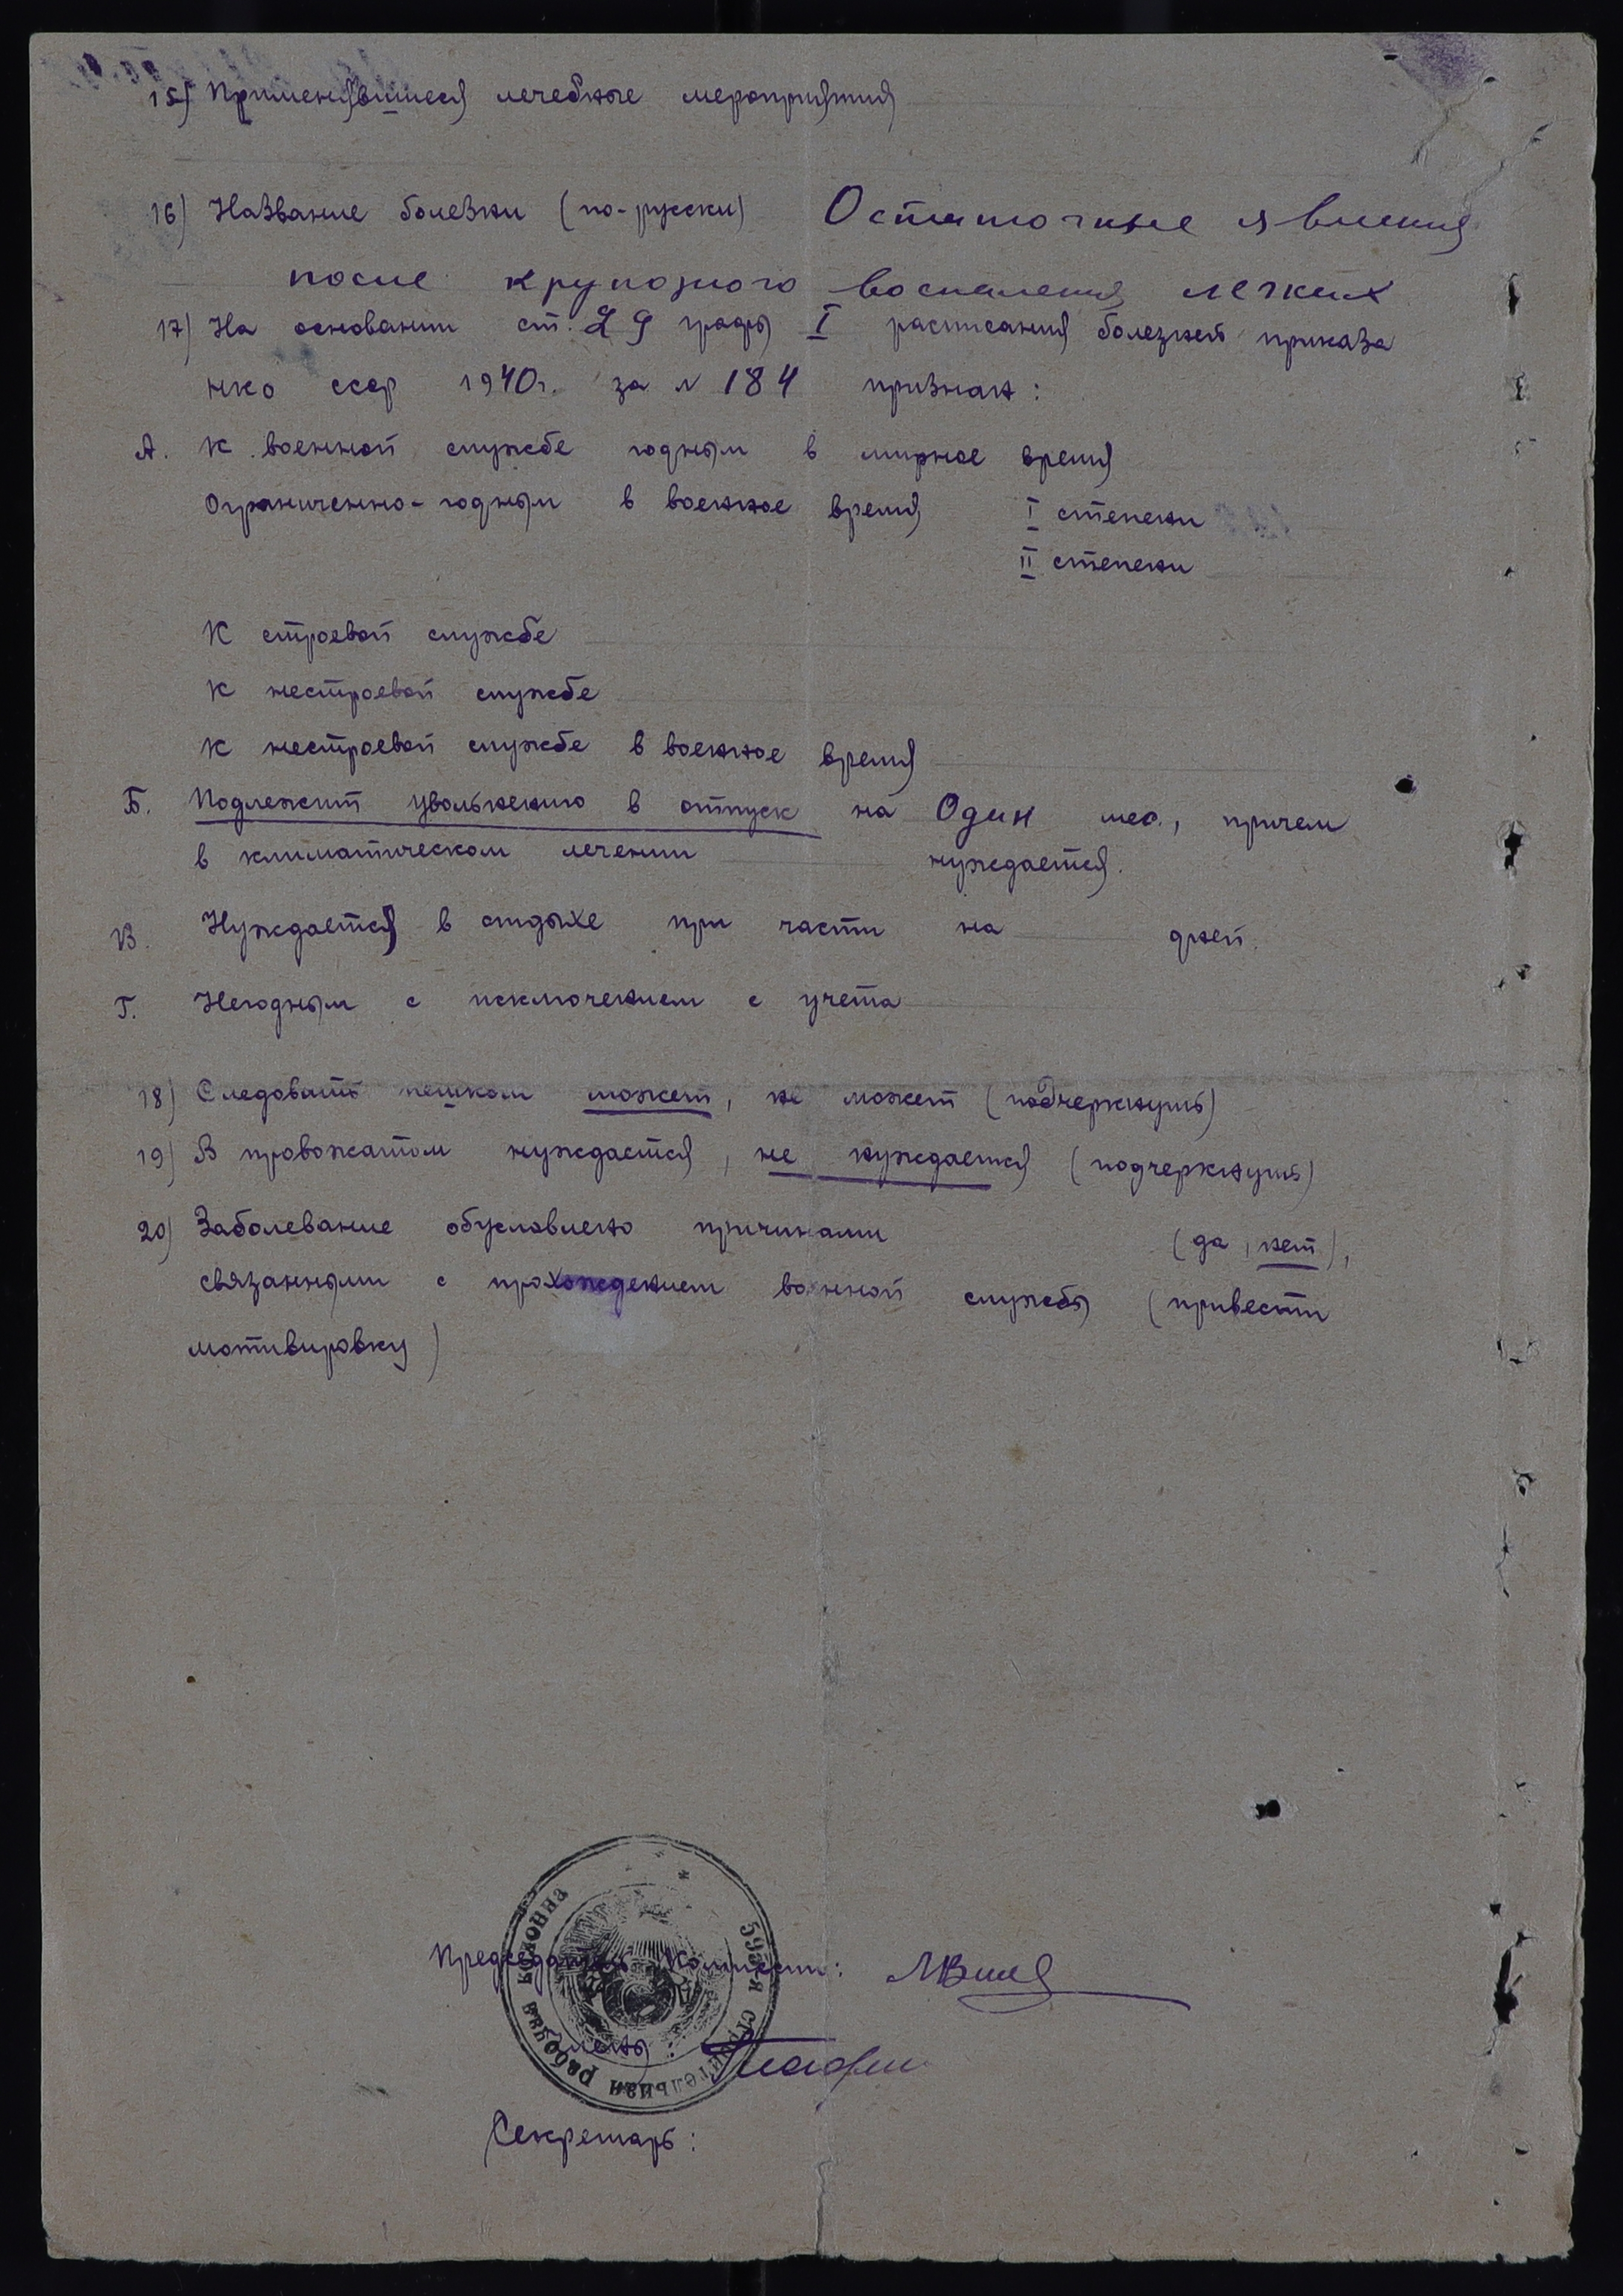 15) Применявшиеся лечебные мероприятия
16) Название болезни (по-русски) Остаточные явления
после крупозного воспаления легких
17) На основании ст. 29 графы I расписания болезней приказа
НКО СССР 1940г. за № 184 признан:
А. К военной службе годным в мирное время
Ограниченно-годным в военное время I степени
II степени
К строевой службе
К нестроевой службе
К нестроевой службе в военное время
Б. Подлежит увольнению в отпуск на Один мес., причем
в климатическом лечении нуждается.
В. Нуждается в отдыхе при части на дней.
Г. Негодным с исключением с учета
18) Следовать пешком может, не может (подчеркнуть)
19) В провожатом нуждается, не нуждается (подчеркнуть)
20) Заболевание обусловлено причинами (да, нет),
связанными с прохождением военной службы (привести
мотивировку)
Председатель Комиссии:
Члены:
Секретарь:
строительная рабочая колонна